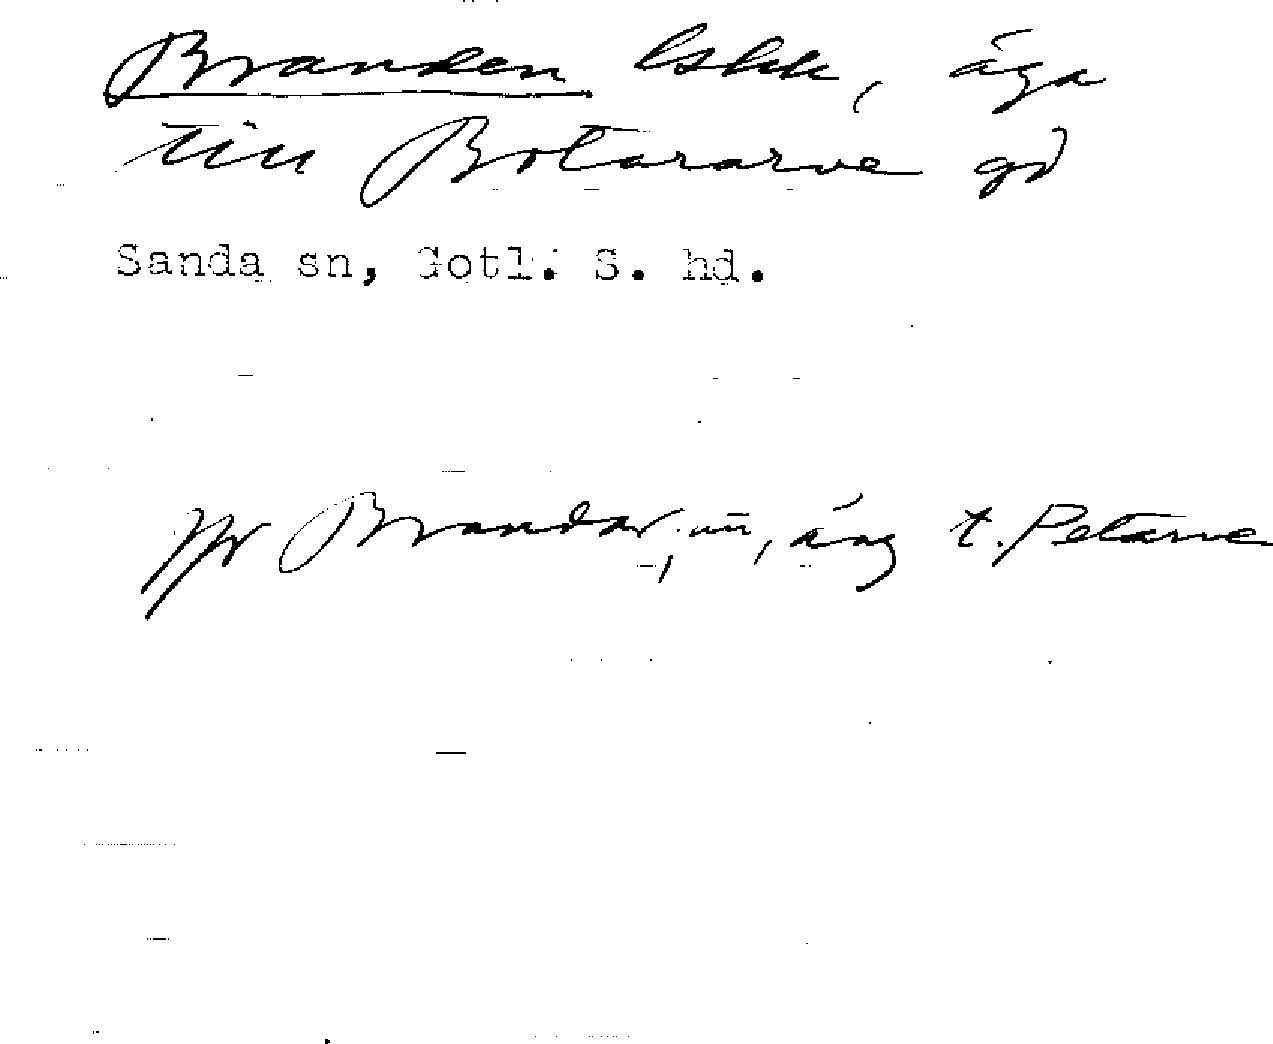 Branden lskk, äga
till Botararve gd
Sanda sn, Gotl. S. hd.
jfr Brandar, äng t. Petarve